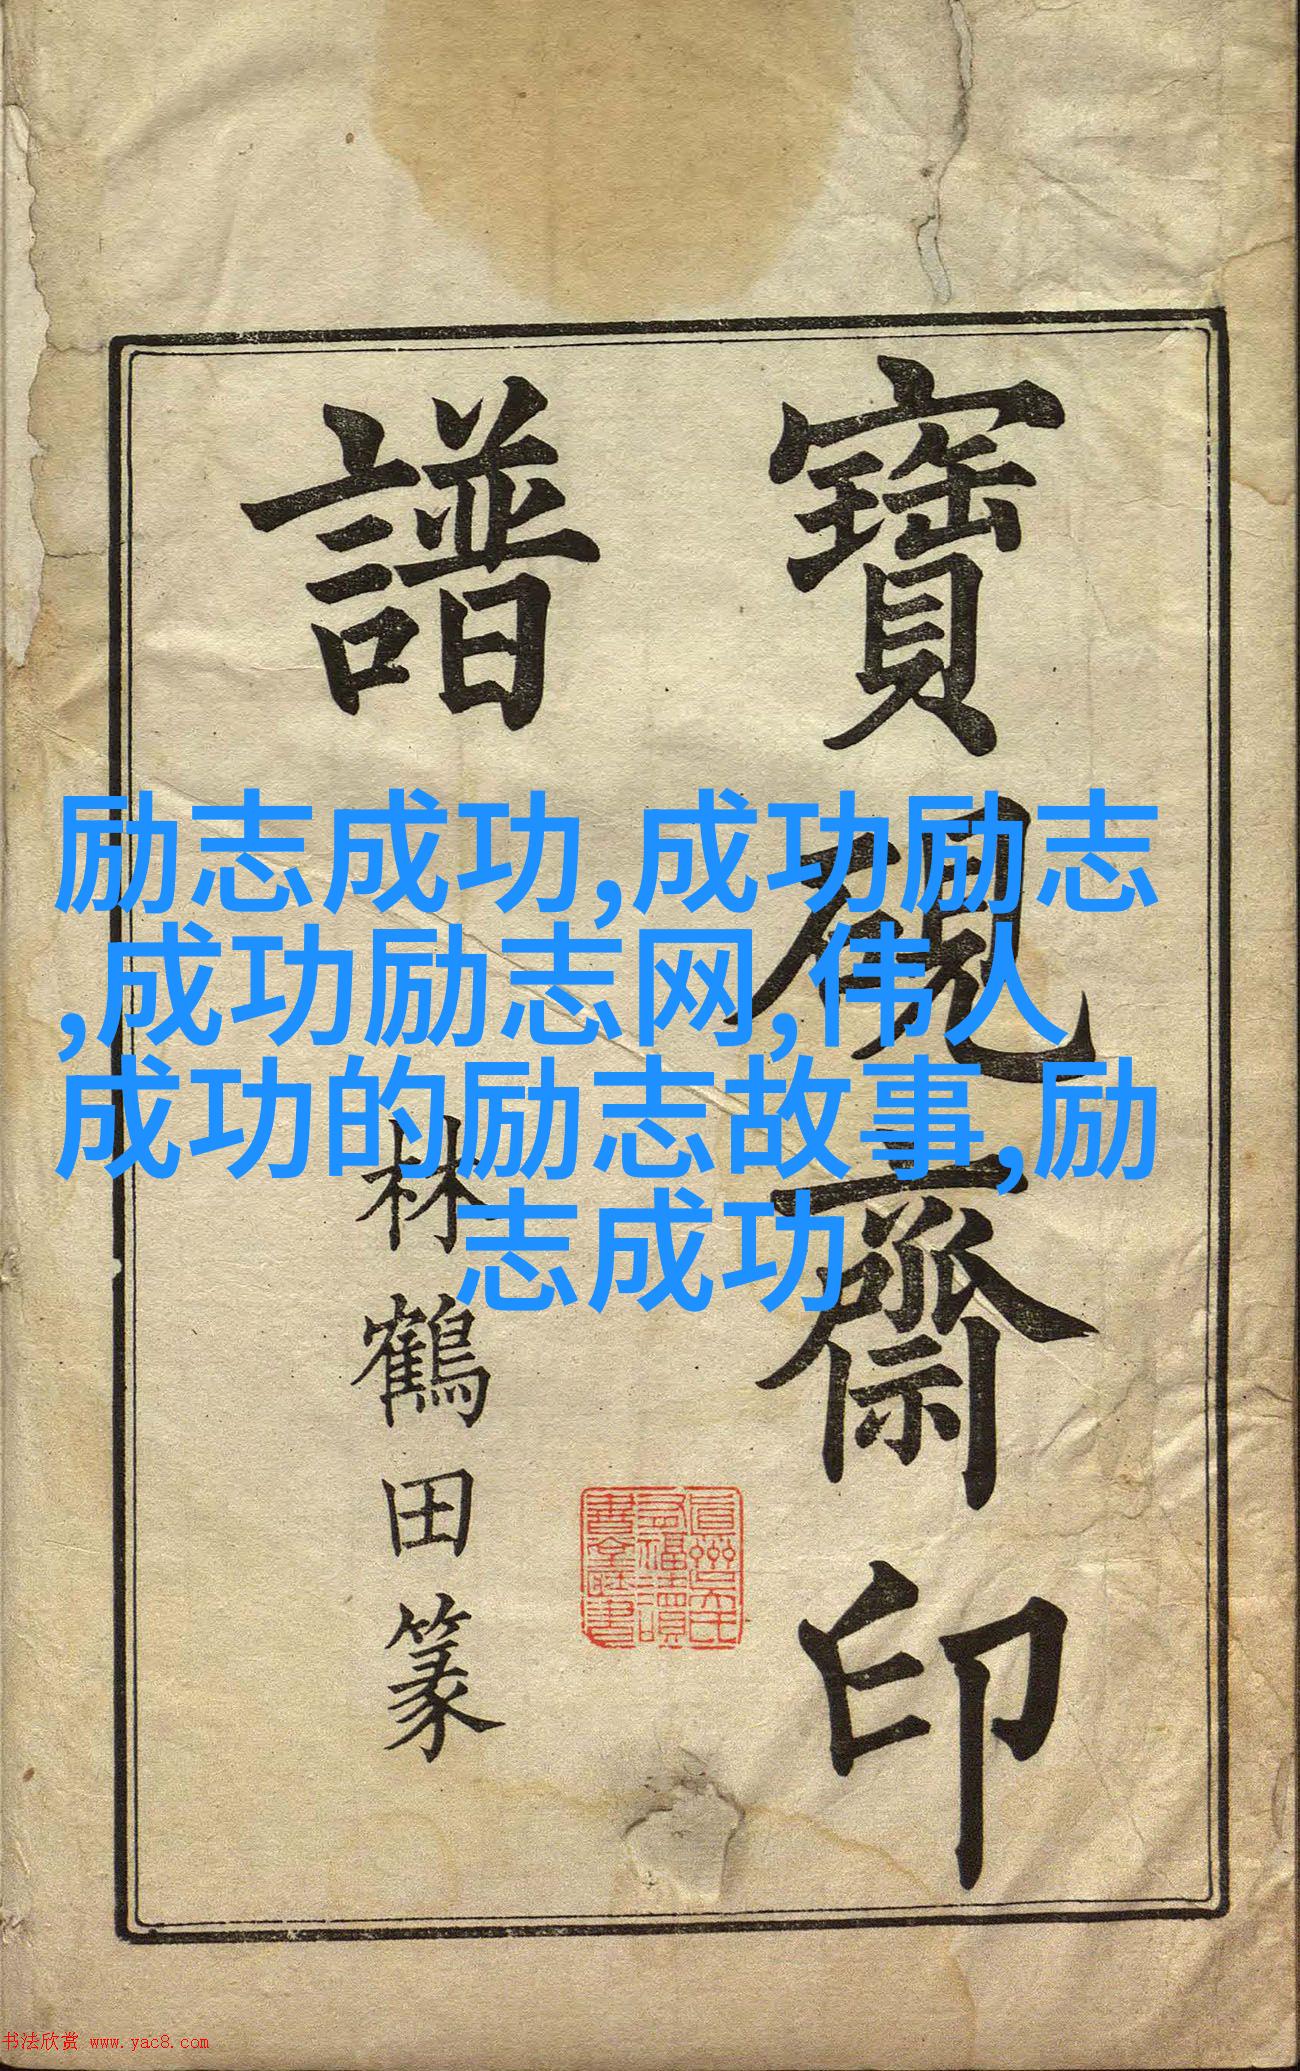 寶硯齋印
譜
林鶴田篆
励志成功,成功励志
,成功励志网,伟人
成功的励志故事,励
志成功
书法欣赏 www.yac8.com